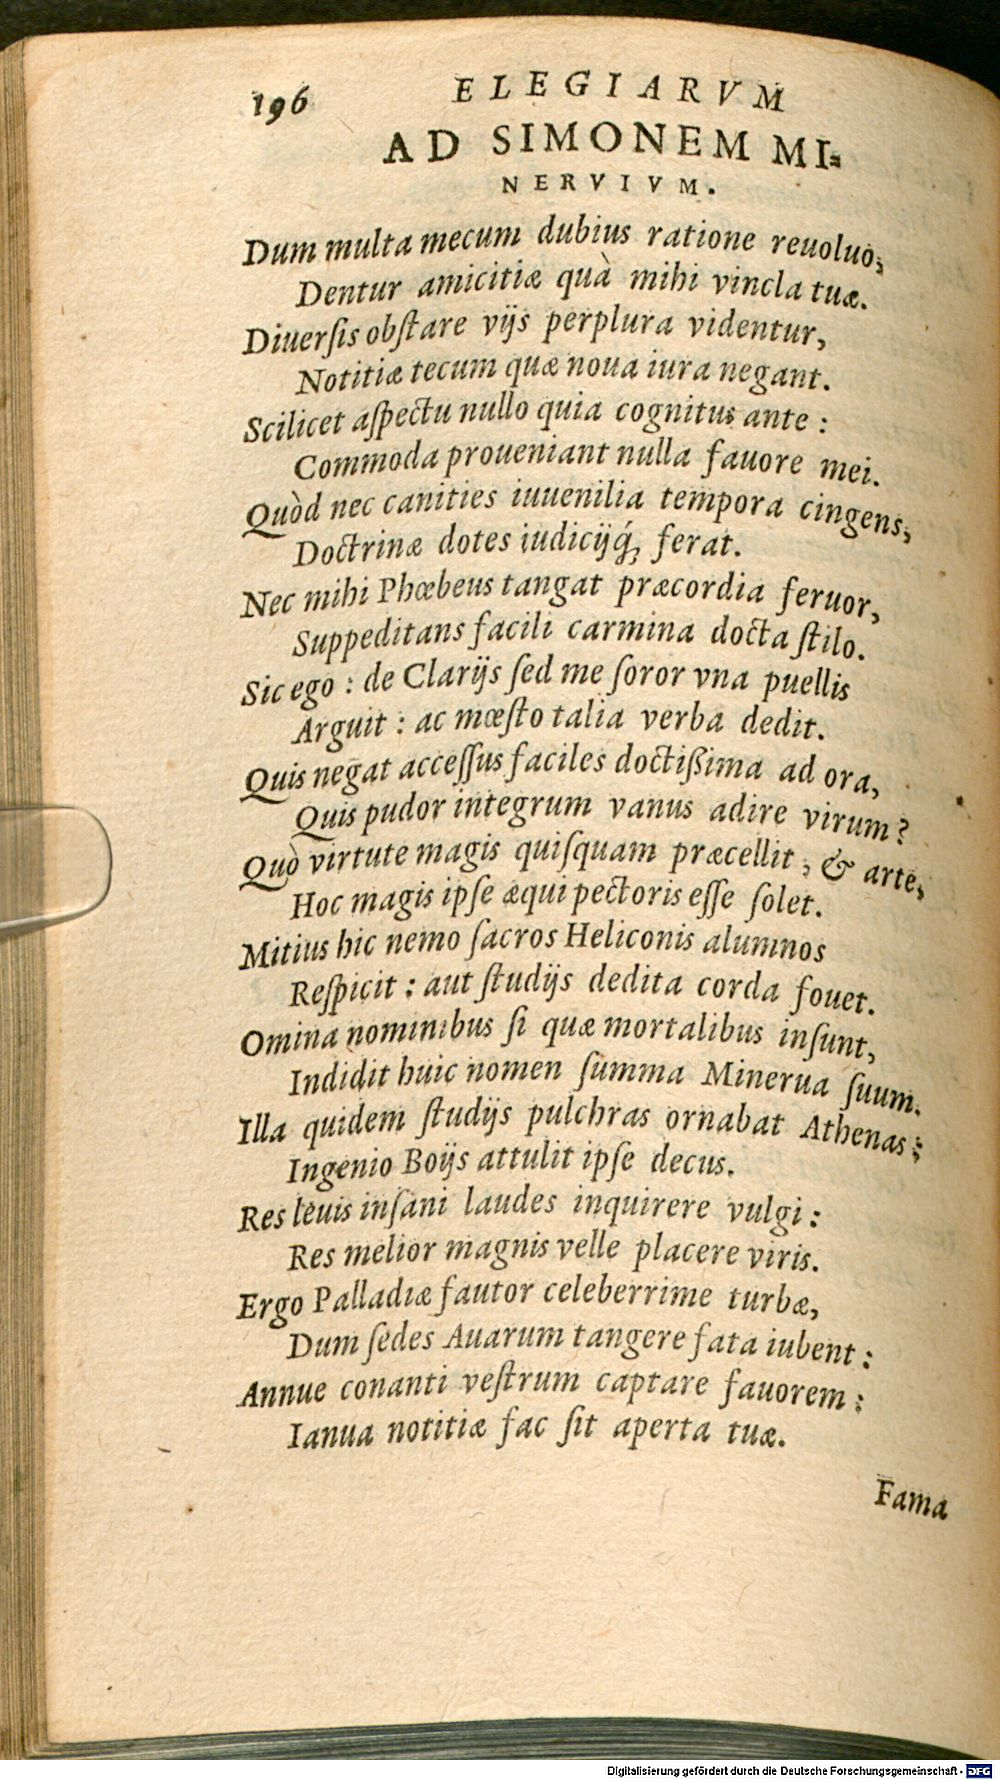 196 ELEGIARVM
AD SIMONEM MI-
NERVIVM.
Dum multa mecum dubius ratione reuoluo,
Dentur amicitiæ quà mihi vincla tuæ.
Diuerſis obſtare vijs perplura videntur,
Notitiæ tecum quæ noua iura negant.
Scilicet aſpectu nullo quia cognitus ante:
Commoda proueniant nulla fauore mei.
Quòd nec canities iuuenilia tempora cingens,
Doctrinæ dotes iudicijq́; ferat.
Nec mihi Phœbeus tangat præcordia feruor,
Suppeditans facili carmina docta ſtilo.
Sic ego: de Clarijs ſed me ſoror vna puellis
Arguit: ac mœſto talia verba dedit.
Quis negat acceſſus faciles doctißima ad ora,
Quis pudor integrum vanus adire virum?
Quò virtute magis quiſquam præcellit, & arte,
Hoc magis ipſe æqui pectoris eſſe ſolet.
Mitius hic nemo ſacros Heliconis alumnos
Reſpicit: aut ſtudijs dedita corda fouet.
Omina nominibus ſi quæ mortalibus inſunt,
Indidit huic nomen ſumma Minerua ſuum.
Illa quidem ſtudijs pulchras ornabat Athenas:
Ingenio Boijs attulit ipſe decus.
Res leuis inſani laudes inquirere vulgi:
Res melior magnis velle placere viris.
Ergo Palladiæ fautor celeberrime turbæ,
Dum ſedes Auarum tangere fata iubent:
Annue conanti veſtrum captare fauorem:
Ianua notitiæ fac ſit aperta tuæ.
Fama
Digitalisierung gefördert durch die Deutsche Forschungsgemeinschaft - DFG